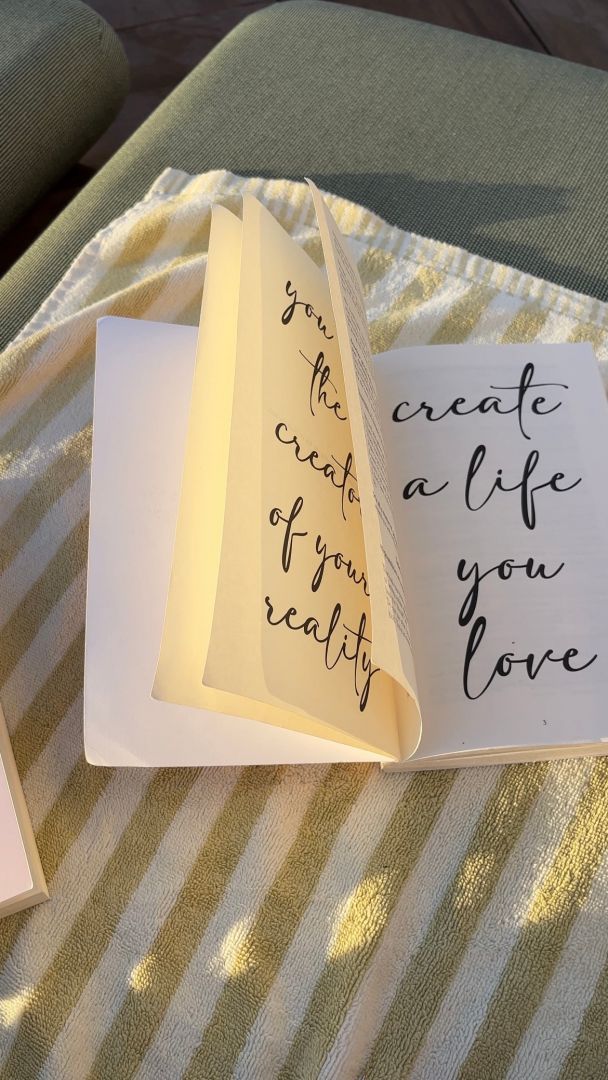 you
the
creato
of your
reality
create
a life
you
love
3